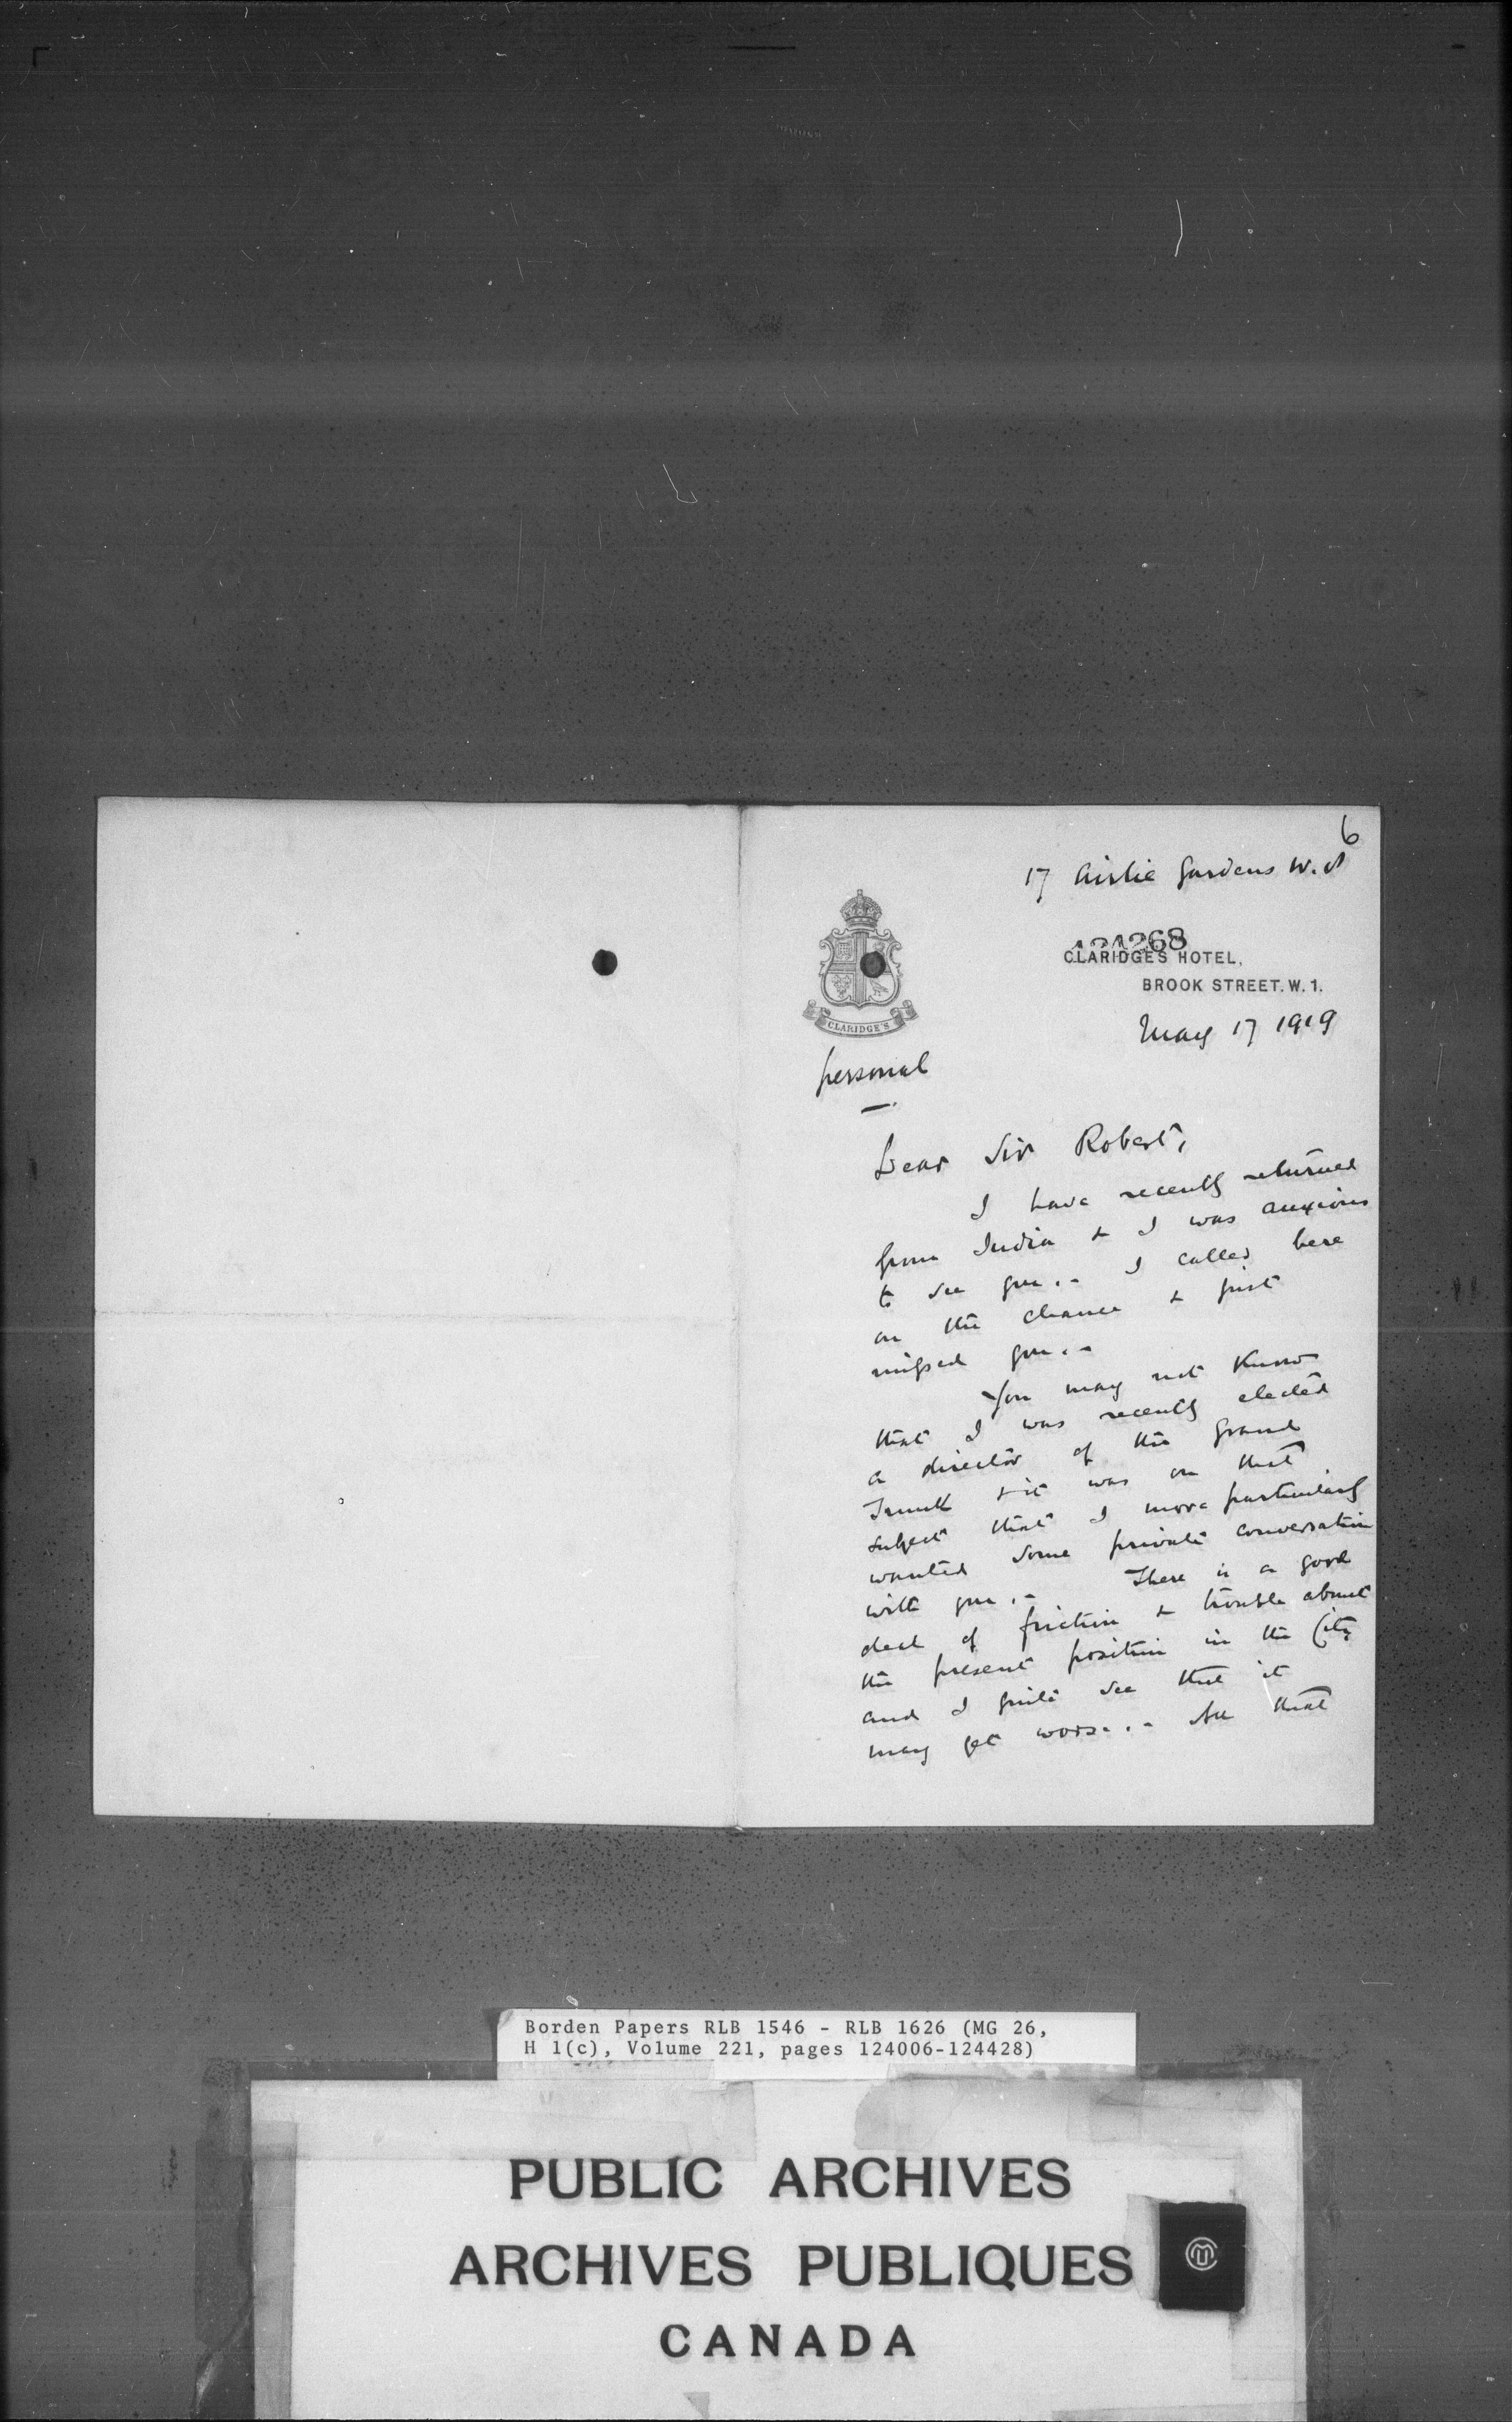 6
17 Airlie Gardens W. 8
124268
CLARIDGE'S HOTEL,
BROOK STREET. W. 1.
CLARIDGE'S
May 17 1919
personal
Dear Sir Robert,
I have recently returned
from India & I was anxious
to see you. - I called here
on the chance & just
missed you. -
You may not know
that I was recently elected
a director of the Grand
Trunk & it was on that
subject that I more particularly
wanted some private conversation
with you. - There is a good
deal of friction & trouble about
the present position in the City
and I quite see that it
may get worse. - All that
Borden Papers RLB 1546 - RLB 1626 (MG 26,
H 1(c), Volume 221, pages 124006-124428)
PUBLIC ARCHIVES
ARCHIVES PUBLIQUES
CANADA